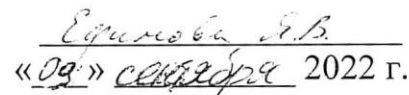 Единова Я.В.
«09» сентября 2022 г.